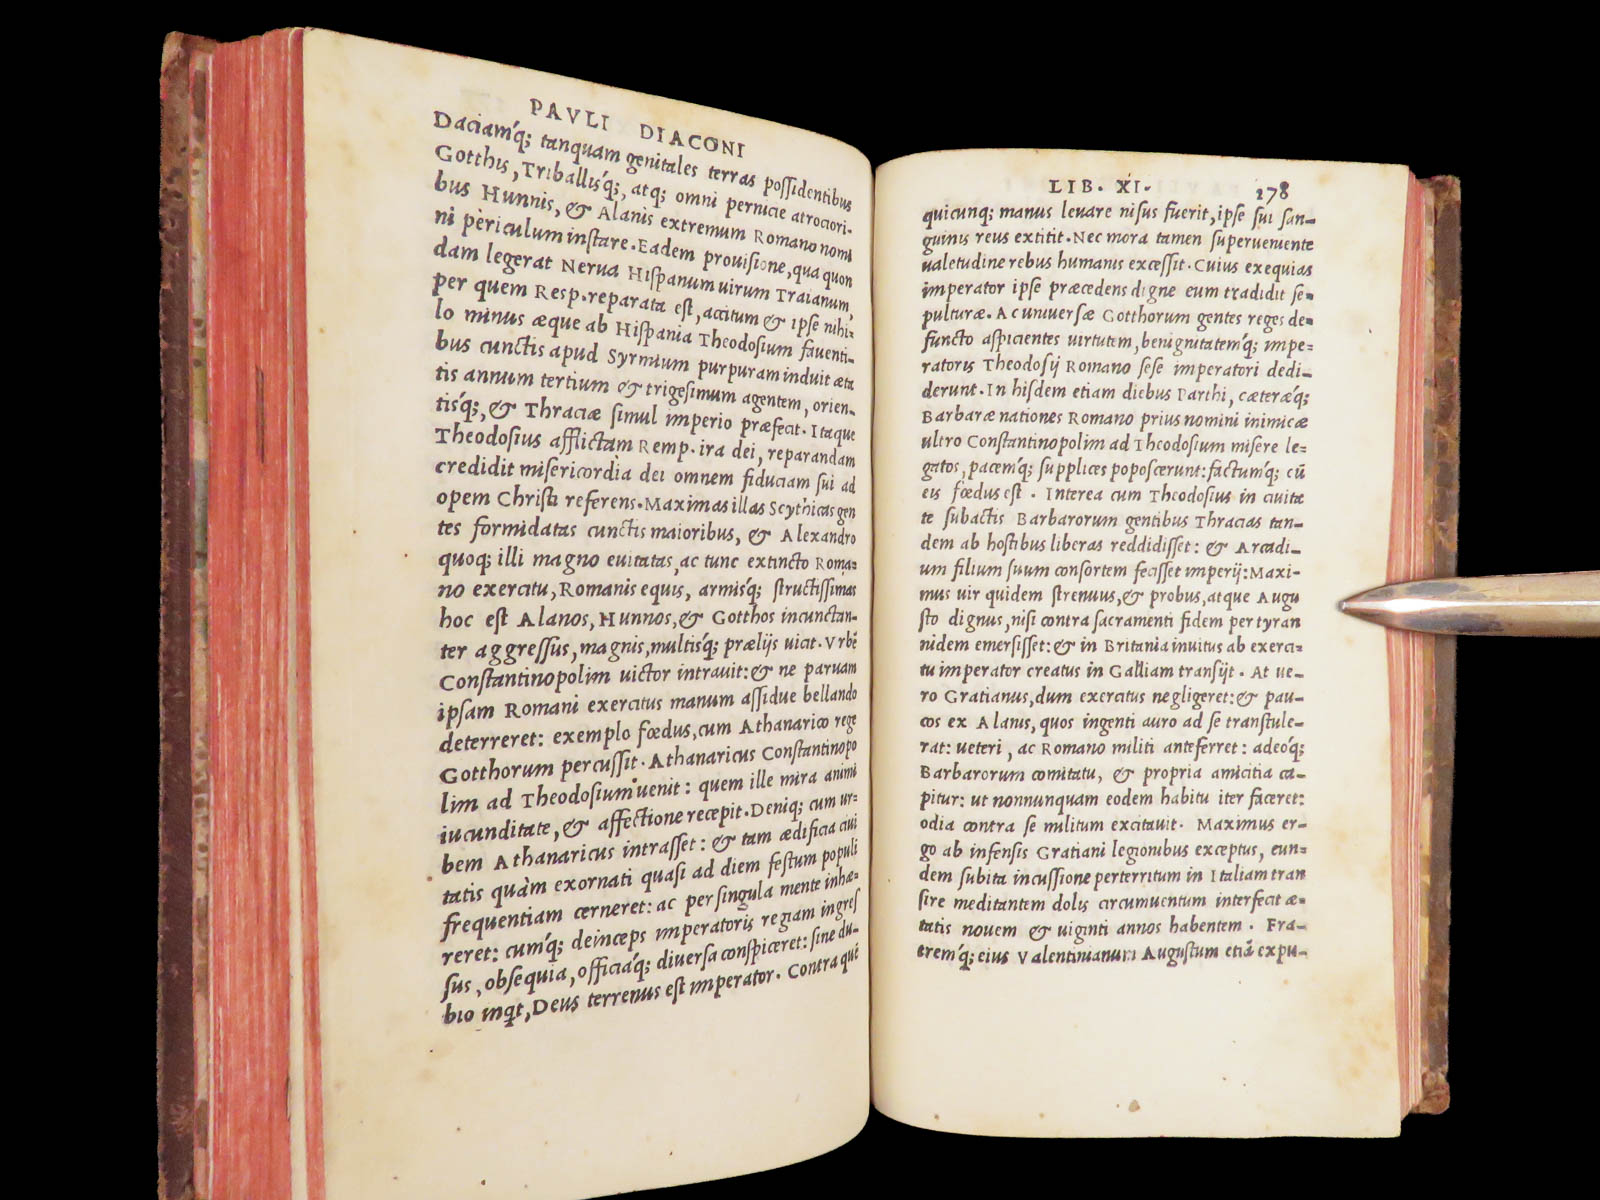 PAVLI DIACONI
Daciamq́; tanquam genitales terras possidentibus
Gotthis, Triballisq́;, atq; omni pernicie atrociori-
bus Hunnis, & Alanis extremum Romano nomi
ni periculum instare. Eadem prouisione, qua quon
dam legerat Nerua Hispanum uirum Traianum,
per quem Resp. reparata est, accitum & ipse nihi-
lo minus æque ab Hispania Theodosium fauenti-
bus cunctis apud Syrmium purpuram induit æta
tis annum tertium & trigesimum agentem, orien-
tisq́;, & Thraciæ simul imperio præfecit. Itaque
Theodosius afflictam Remp. ira dei, reparandam
credidit misericordia dei omnem fiduciam sui ad
opem Christi referens. Maximas illas Scythicas gen
tes formidatas cunctis maioribus, & Alexandro
quoq; illi magno euitatas, ac tunc extincto Roma-
no exercitu, Romanis equis, armisq́; structissimas
hoc est Alanos, Hunnos, & Gotthos incunctan-
ter aggressus, magnis, multisq́; prælijs uicit. Vrbē
Constantinopolim uictor intrauit: & ne paruam
ipsam Romani exercitus manum assidue bellando
deterreret: exemplo fœdus, cum Athanarico rege
Gotthorum percussit. Athanaricus Constantinopo
lim ad Theodosium uenit: quem ille mira animi
iucunditate, & affectione recepit. Deniq; cum ur-
bem Athanaricus intrasset: & tam ædificia ciui
tatis quàm exornati quasi ad diem festum populi
frequentiam cerneret: ac per singula mente inhæ-
reret: cumq́; deinceps imperatoris regiam ingres
sus, obsequia, officiaq́; diuersa conspiceret: sine du-
bio inqt, Deus terrenus est imperator. Contra quē
LIB. XI. 178
quicunq; manus leuare nisus fuerit, ipse sui san-
guinis reus extitit. Nec mora tamen superueniente
ualetudine rebus humanis excessit. Cuius exequias
imperator ipse præcedens digne eum tradidit se-
pulturæ. Ac uniuersæ Gotthorum gentes reges de-
functo aspicientes uirtutem, benignitatemq́; impe-
ratoris Theodosij Romano sese imperatori dedi-
derunt. In hisdem etiam diebus Parthi, cæteræq́;
Barbaræ nationes Romano prius nomini inimicæ
ultro Constantinopolim ad Theodosium misere le-
gatos, pacemq́; supplices poposcerunt: factumq́; cū
eis fœdus est. Interea cum Theodosius in ciuita
te subactis Barbarorum gentibus Thracias tan-
dem ab hostibus liberas reddidisset: & Arcadi-
um filium suum consortem fecisset imperij: Maxi-
mus uir quidem strenuus, & probus, atque Augu
sto dignus, nisi contra sacramenti fidem per tyran
nidem emersisset: & in Britania inuitus ab exerci-
tu imperator creatus in Galliam transijt. At ue-
ro Gratianus, dum exercitus negligeret: & pau-
cos ex Alanis, quos ingenti auro ad se transtule-
rat: ueteri, ac Romano militi anteferret: adeoq́;
Barbarorum comitatu, & propria amicitia ca-
pitur: ut nonnunquam eodem habitu iter faceret:
odia contra se militum excitauit. Maximus er-
go ab infensis Gratiani legionibus exceptus, eun-
dem subita incussione perterritum in Italiam tran
sire meditantem dolis circumuentum interfecit æ-
tatis nouem & uiginti annos habentem. Fra-
tremq́; eius Valentinianum Augustum etiā expu-